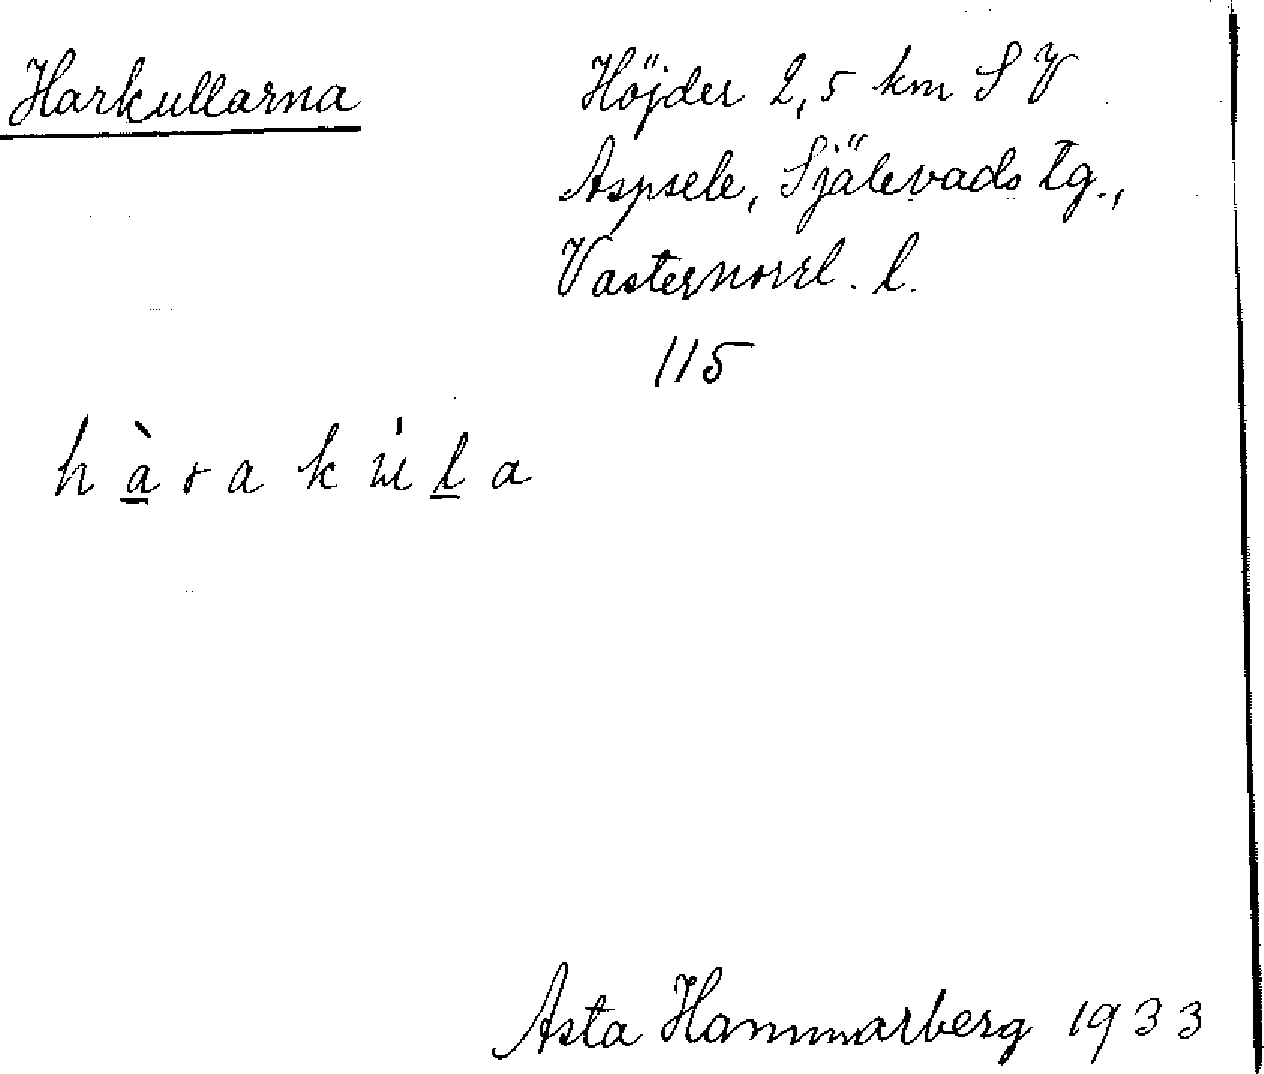 Harkullarna
Höjder 2,5 km SV
Aspsele, Själevads tg.,
Vasternorrl. l.
115
h à r a k ú l a
Asta Hammarberg 1933